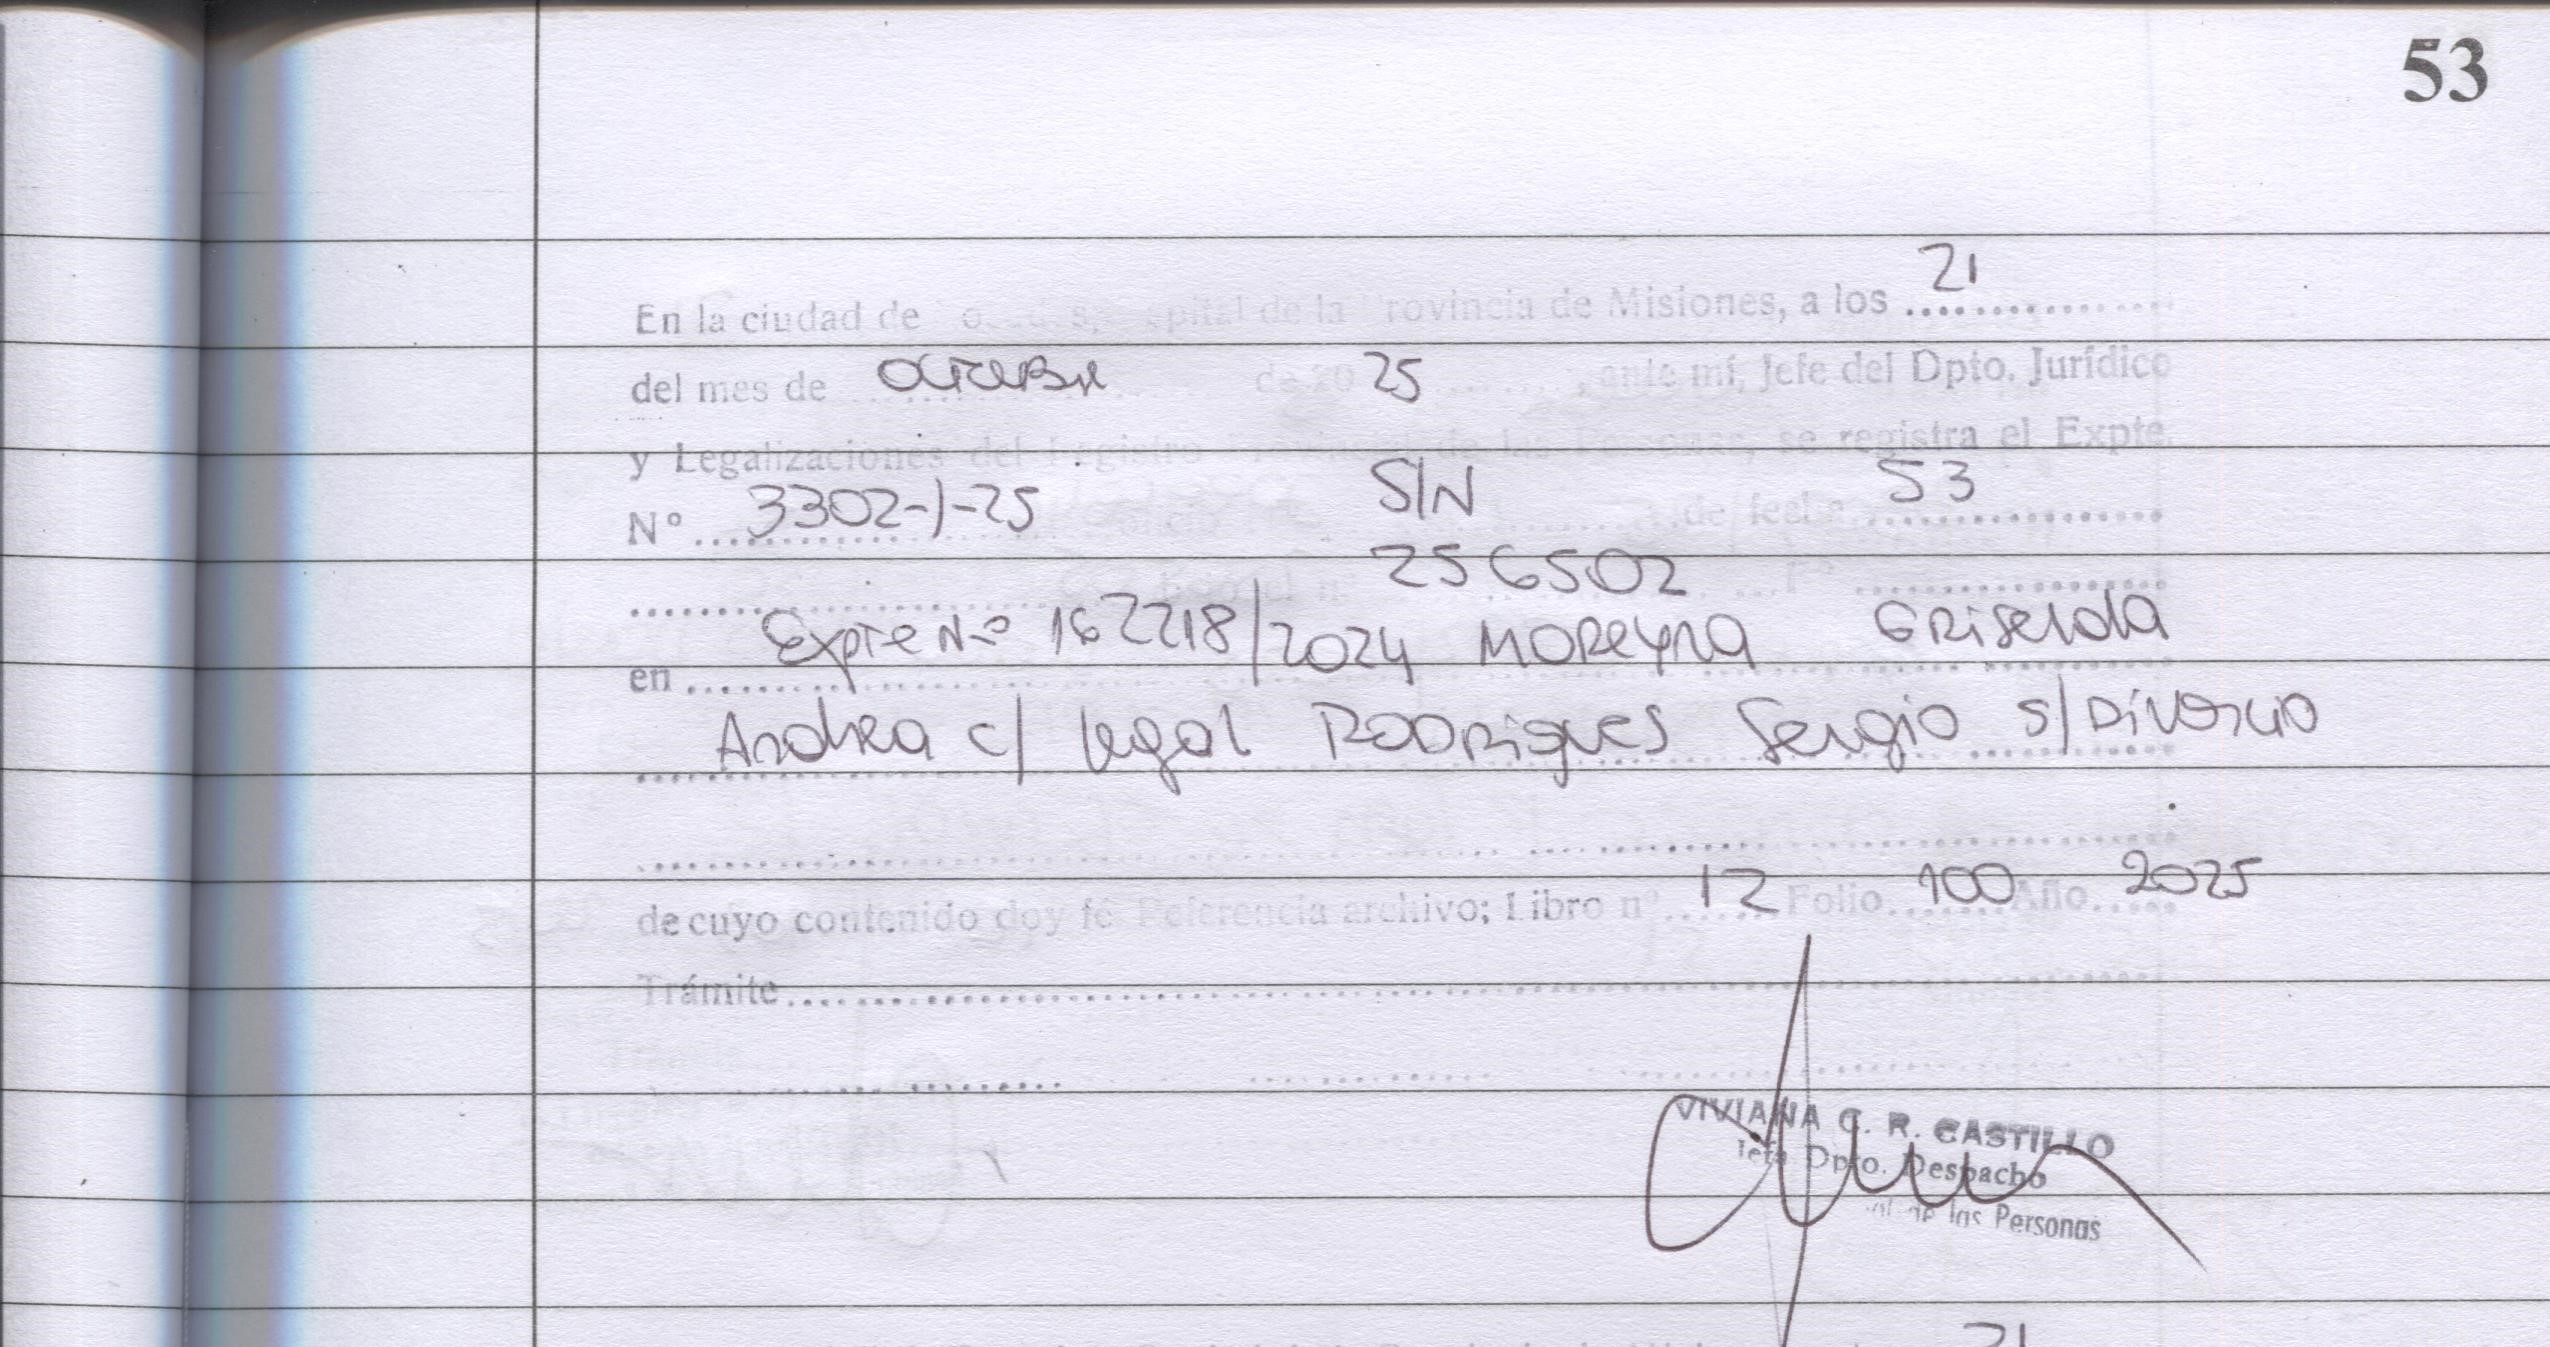 53
En la ciudad de Capital de la Provincia de Misiones, a los 21
del mes de Octubre de 20 25, ante mí, Jefe del Dpto. Jurídico
y Legalizaciones del Registro Provincial de las Personas, se registra el Expte.
Nº 3302-J-25 oficio S/N de fecha 53
256502
en Expte Nº 167218/2024 MOREYRA Griselda
Andrea c/ Legal RODRigues Sergio s/ Divorcio
de cuyo contenido doy fé Referencia archivo; Libro nº 12 Folio 100 Año 2025
Trámite
VIVIANA C. R. CASTILLO
Jefa Dpto. Despacho
de las Personas
21